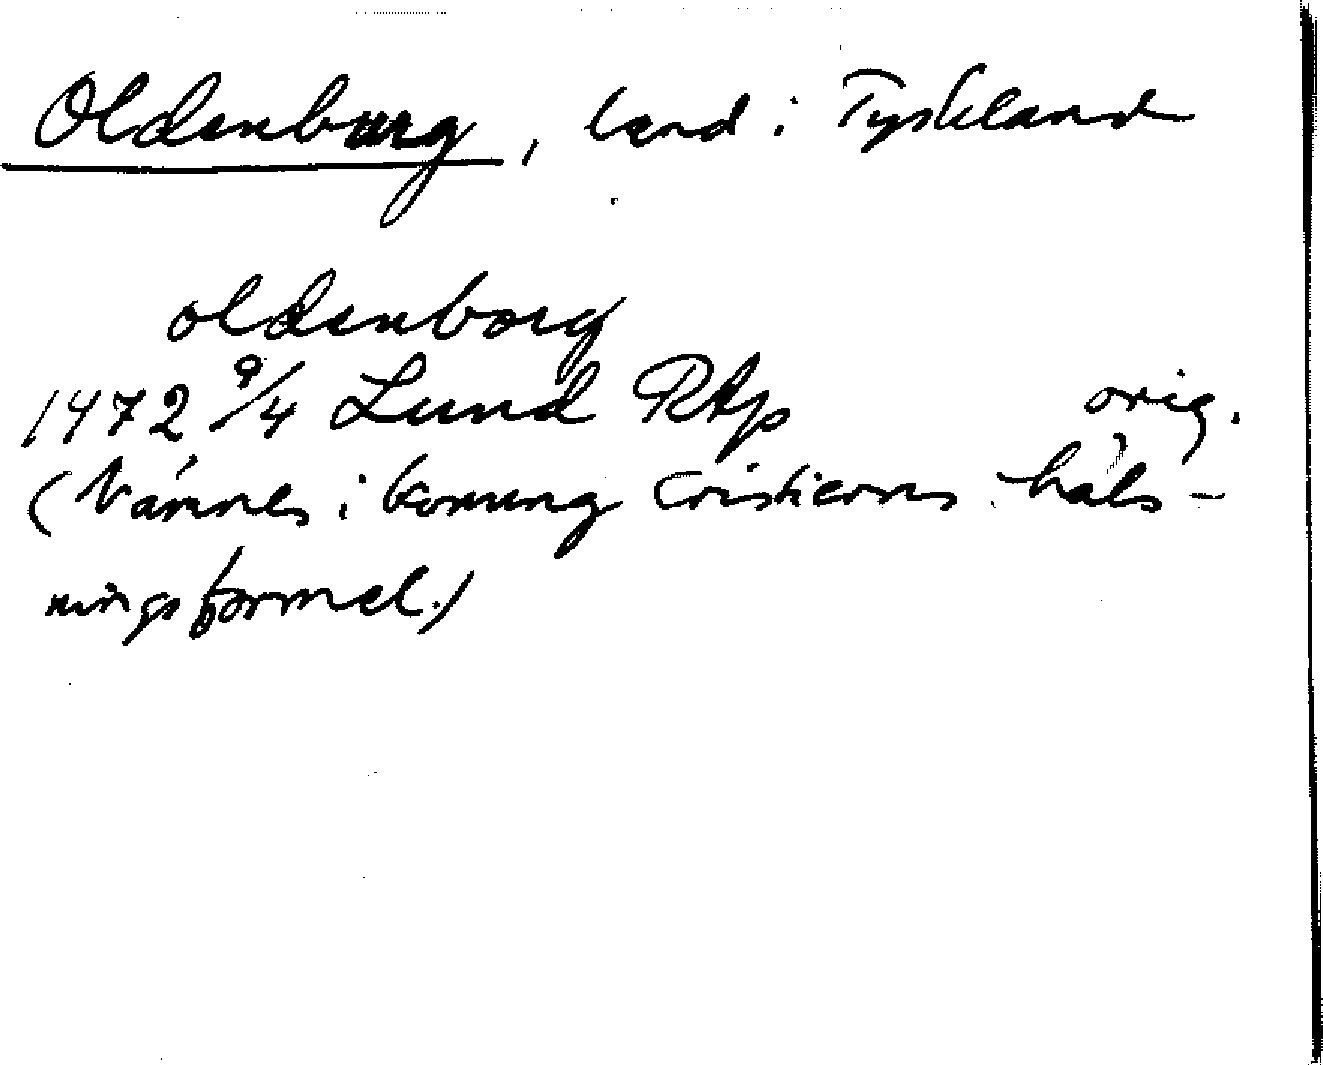 Oldenburg, land i Tyskland
oldenborg
1472 9/4 Lund RAp orig.
(Nämnes i konung Cristierns häls-
ningsformel.)